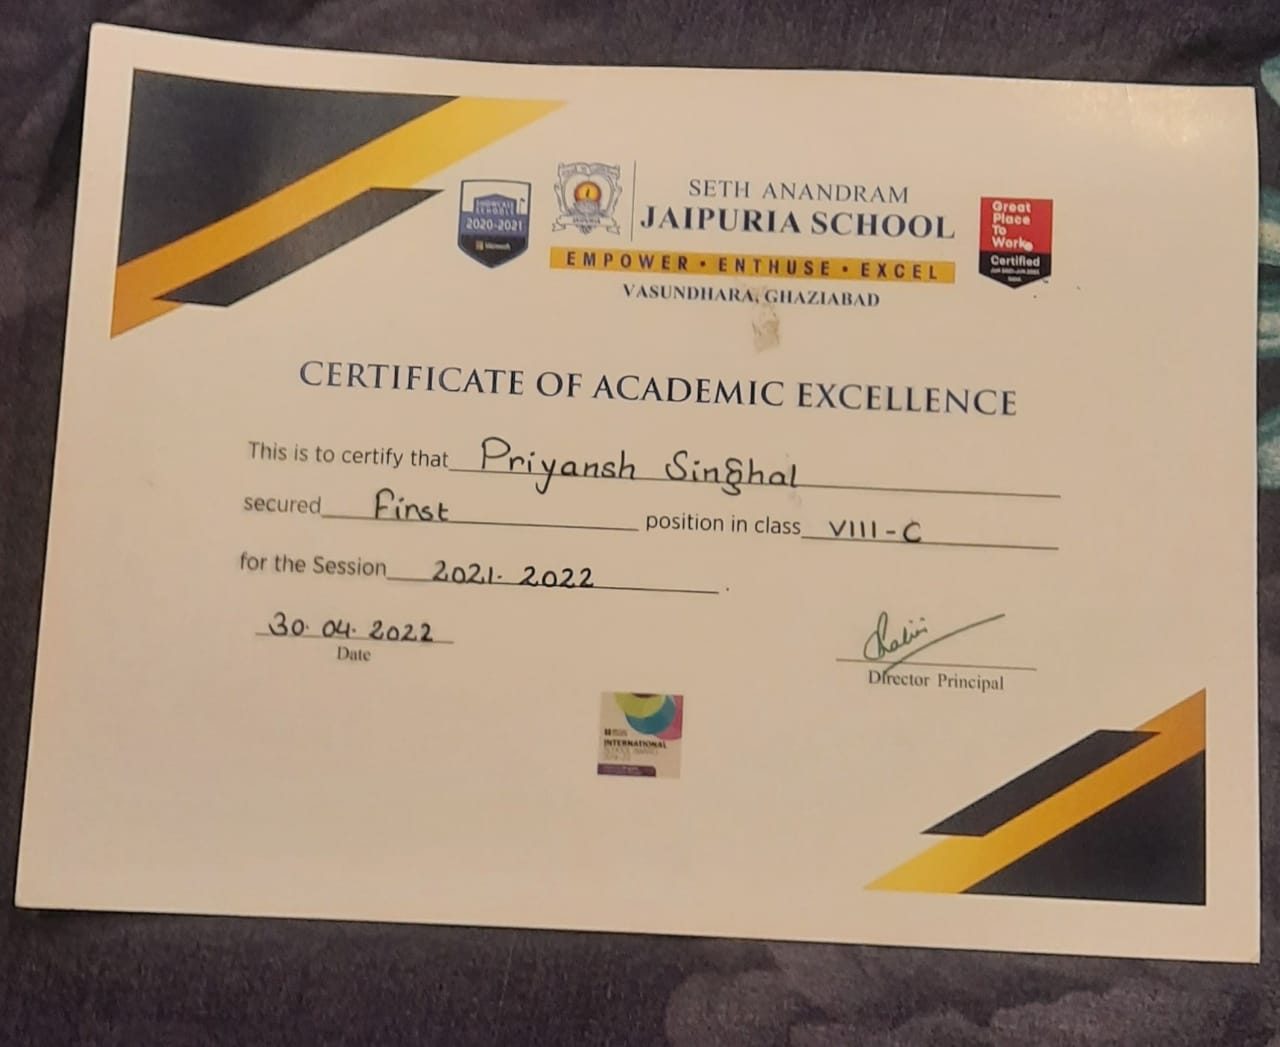 SHOWCASE
SCHOOLS
2020-2021
Microsoft
SETH ANANDRAM
JAIPURIA SCHOOL
EMPOWER • ENTHUSE • EXCEL
VASUNDHARA, GHAZIABAD
Great
Place
To
Work
Certified
CERTIFICATE OF ACADEMIC EXCELLENCE
This is to certify that Priyansh Singhal
secured First position in class VIII-C
for the Session 2021-2022.
30.04.2022
Date
Director Principal
INTERNATIONAL